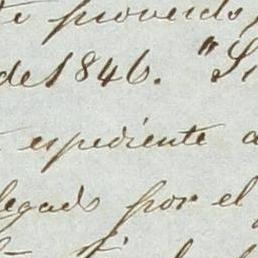 proveido,
de 1846. "Si
espediente a
legado por el